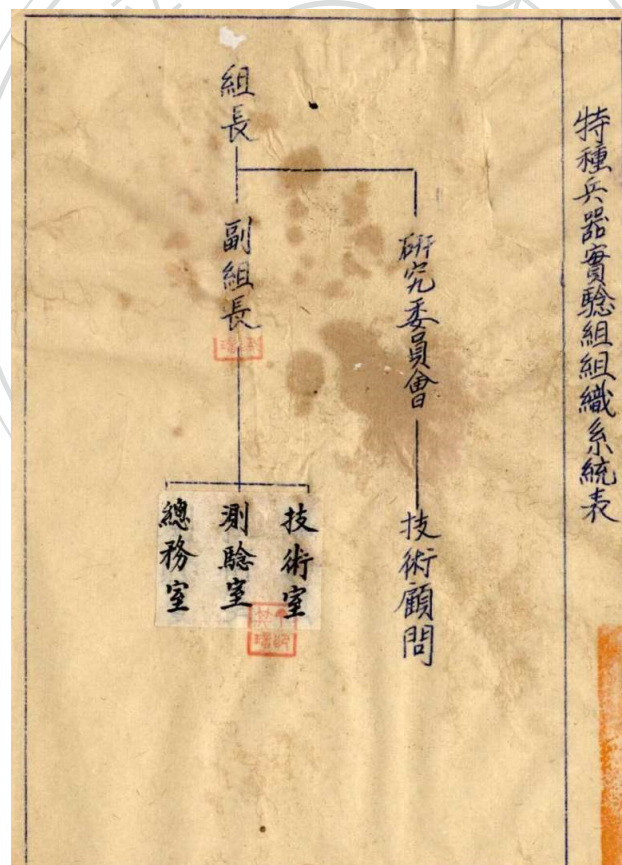 特種兵器實驗組組織系統表
組長
研究委員會
技術顧問
副組長
技術室
測驗室
總務室